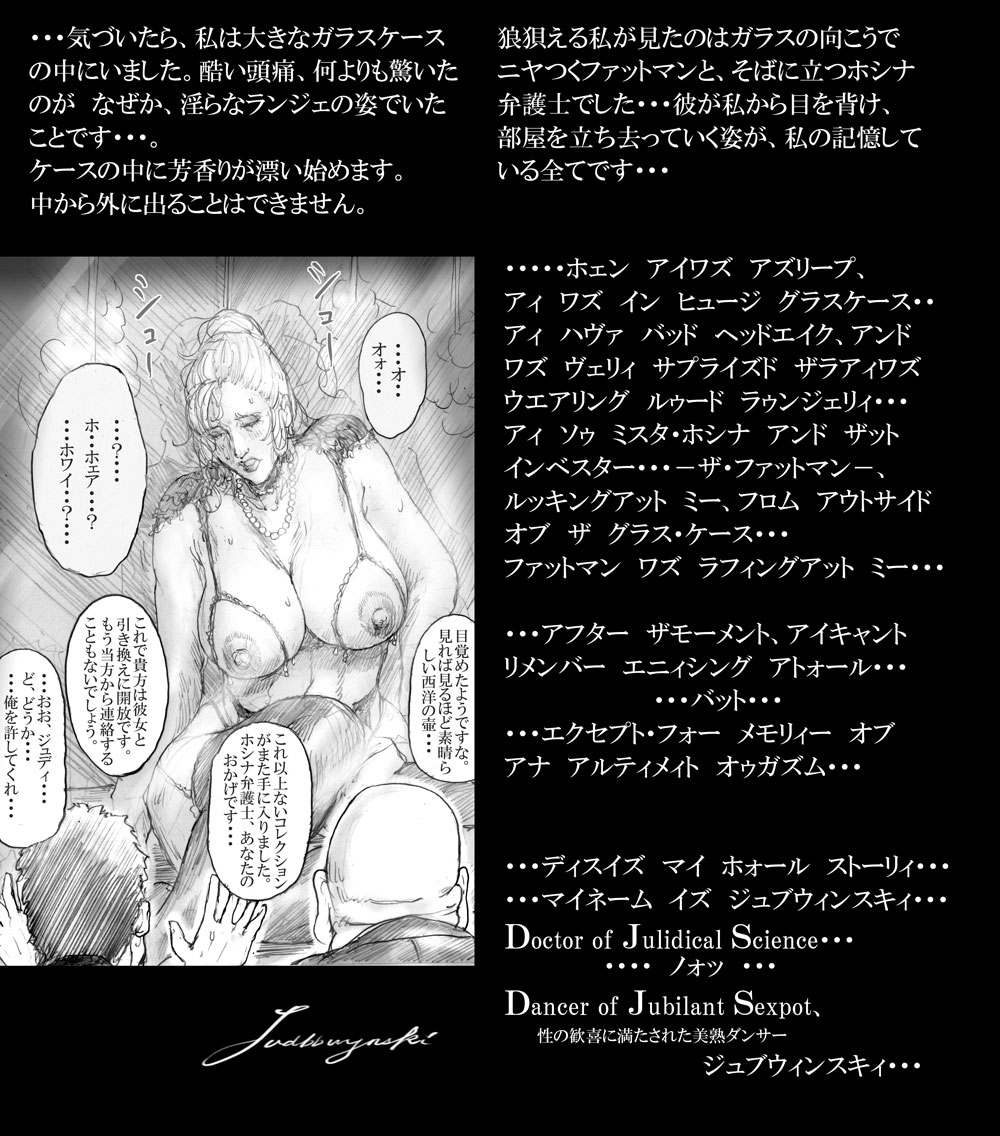 ・・・気づいたら、私は大きなガラスケース
の中にいました。酷い頭痛、何よりも驚いた
のが なぜか、淫らなランジェの姿でいた
ことです・・・。
ケースの中に芳香りが漂い始めます。
中から外に出ることはできません。
狼狽える私が見たのはガラスの向こうで
ニヤつくファットマンと、そばに立つホシナ
弁護士でした・・・彼が私から目を背け、
部屋を立ち去っていく姿が、私の記憶して
いる全てです・・・
シュー
シュー
・・・オ・・
オォ・・・
・・？・・・
ホ・・ホェア・・・？
・・・ホワイ・・？・・
目覚めたようですな。
見れば見るほど素晴ら
しい西洋の壷・・・
これ以上ないコレクション
がまた手に入りました。
ホシナ弁護士、あなたの
おかげです・・・
これで貴方は彼女と
引き換えに開放です。
もう当方から連絡する
こともないでしょう。
・・・おお、ジュディ・・・
ど、どうか・・・
・・・俺を許してくれ・・・
・・・・・ホェン アイワズ アズリープ、
アィ ワズ イン ヒュージ グラスケース・・
アィ ハヴァ バッド ヘッドエイク、アンド
ワズ ヴェリィ サプライズド ザラアィワズ
ウエアリング ルゥード ラゥンジェリィ・・・
アィ ソゥ ミスタ・ホシナ アンド ザット
インベスター・・・－ザ・ファットマン－、
ルッキングアット ミー、フロム アウトサイド
オブ ザ グラス・ケース・・・
ファットマン ワズ ラフィングアット ミー・・・
・・・アフター ザモーメント、アイキャント
リメンバー エニィシング アトォール・・・
・・・バット・・・
・・・エクセプト・フォー メモリィー オブ
アナ アルティメイト オゥガズム・・・
・・・ディスイズ マイ ホォール ストーリィ・・・
・・・マイネーム イズ ジュブウィンスキィ・・・
Doctor of Julidical Science・・・
・・・・ ノォッ ・・・
Dancer of Jubilant Sexpot、
性の歓喜に満たされた美熟ダンサー
ジュブウィンスキィ・・・